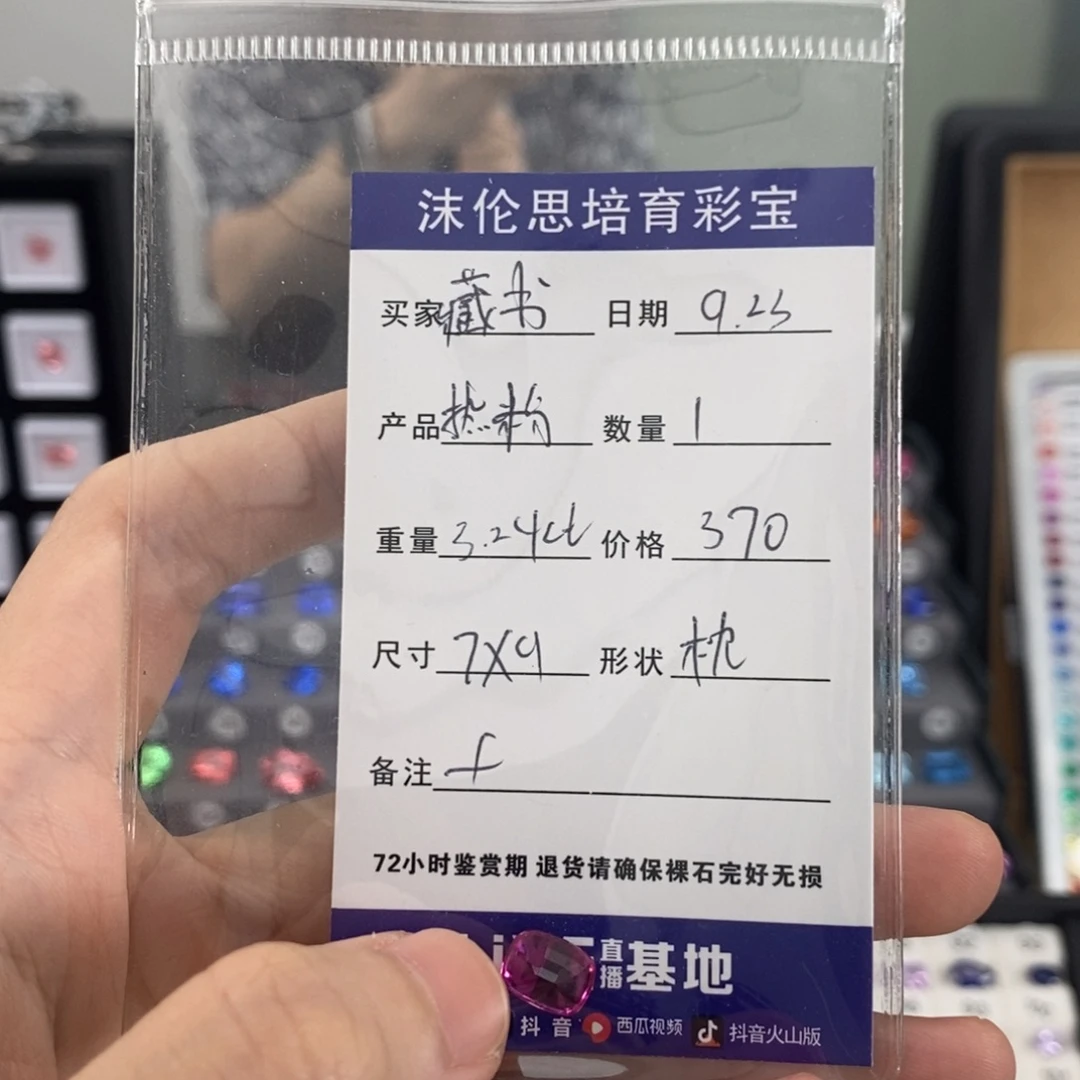 沫伦思培育彩宝
买家 藏书 日期 9.23
产品 热粉 数量 1
重量 3.24ct 价格 370
尺寸 7X9 形状 枕
备注 f
72小时鉴赏期 退货请确保裸石完好无损
直播基地
抖音 西瓜视频 抖音火山版